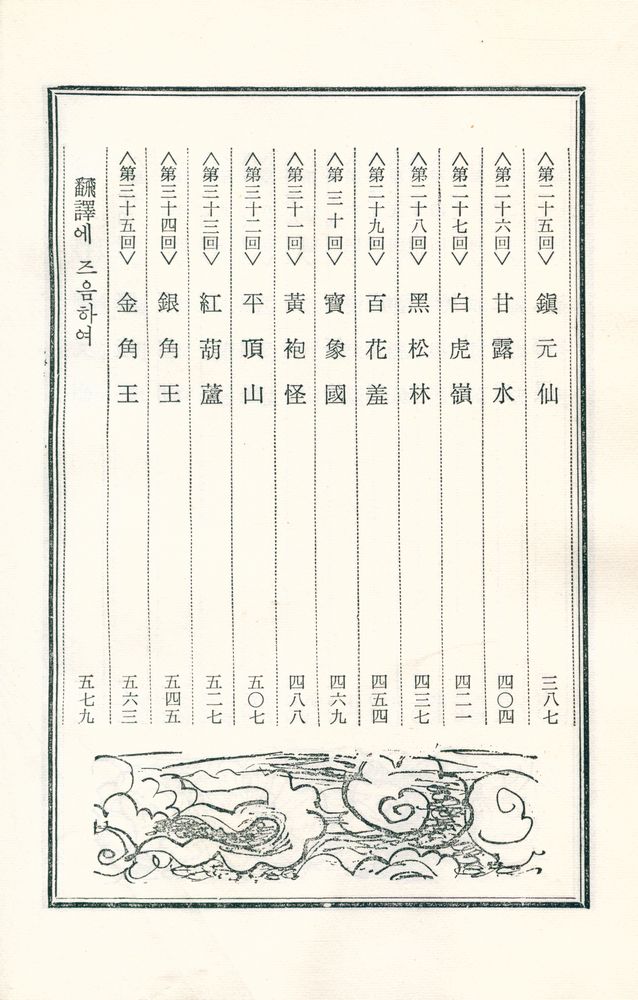 <第二十五回> 鎭元仙 三八七
<第二十六回> 甘露水 四〇四
<第二十七回> 白虎嶺 四二一
<第二十八回> 黑松林 四三七
<第二十九回> 百花羞 四五四
<第三十回> 寶象國 四六九
<第三十一回> 黃袍怪 四八八
<第三十二回> 平頂山 五〇七
<第三十三回> 紅葫蘆 五二七
<第三十四回> 銀角王 五四五
<第三十五回> 金角王 五六三
飜譯에 즈음하여 五七九